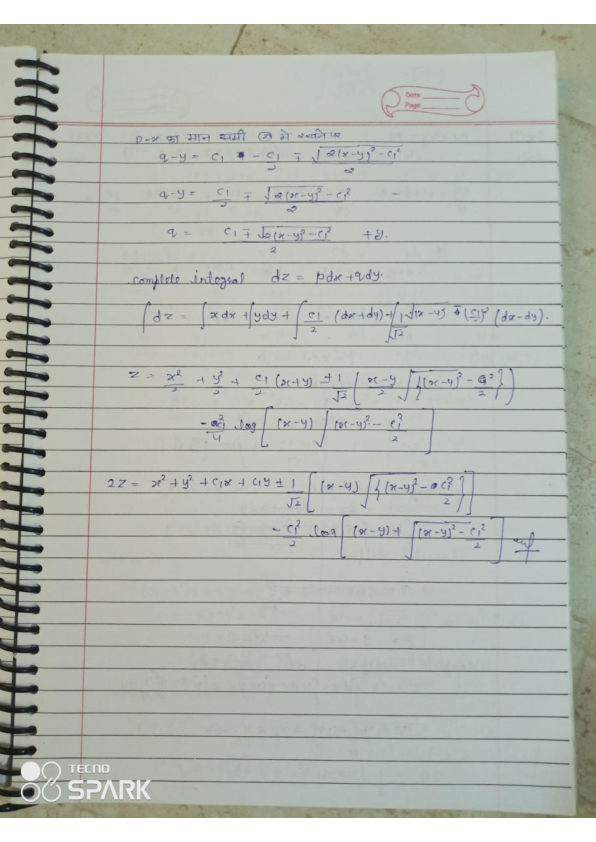 Date
Page
p-x का मान समी में रखने पर
q-y = c₁ - c₁/2 ∓ √(2(x-y)² - c₁²)/2
q-y = c₁/2 ∓ √(2(x-y)² - c₁²)/2
q = (c₁ ∓ √(2(x-y)² - c₁²))/2 + y.
complete integral dz = pdx + qdy.
∫dz = ∫xdx + ∫ydy + ∫c₁/2 (dx+dy) + ∫1/√2 √(x-y)² (c₁)² (dx-dy).
z = x²/2 + y²/2 + c₁/2 (x+y) ± 1/√2 [ (x-y)/2 √{(x-y)² - c₁²/2} ]
- c₁²/4 log [ (x-y) √((x-y)² - c₁²/2) ]
2z = x² + y² + c₁x + c₁y ± 1/√2 [ (x-y) √{(x-y)² - c₁²/2} ]
- c₁²/2 log [ (x-y) + √((x-y)² - c₁²/2) ]
TECNO
SPARK